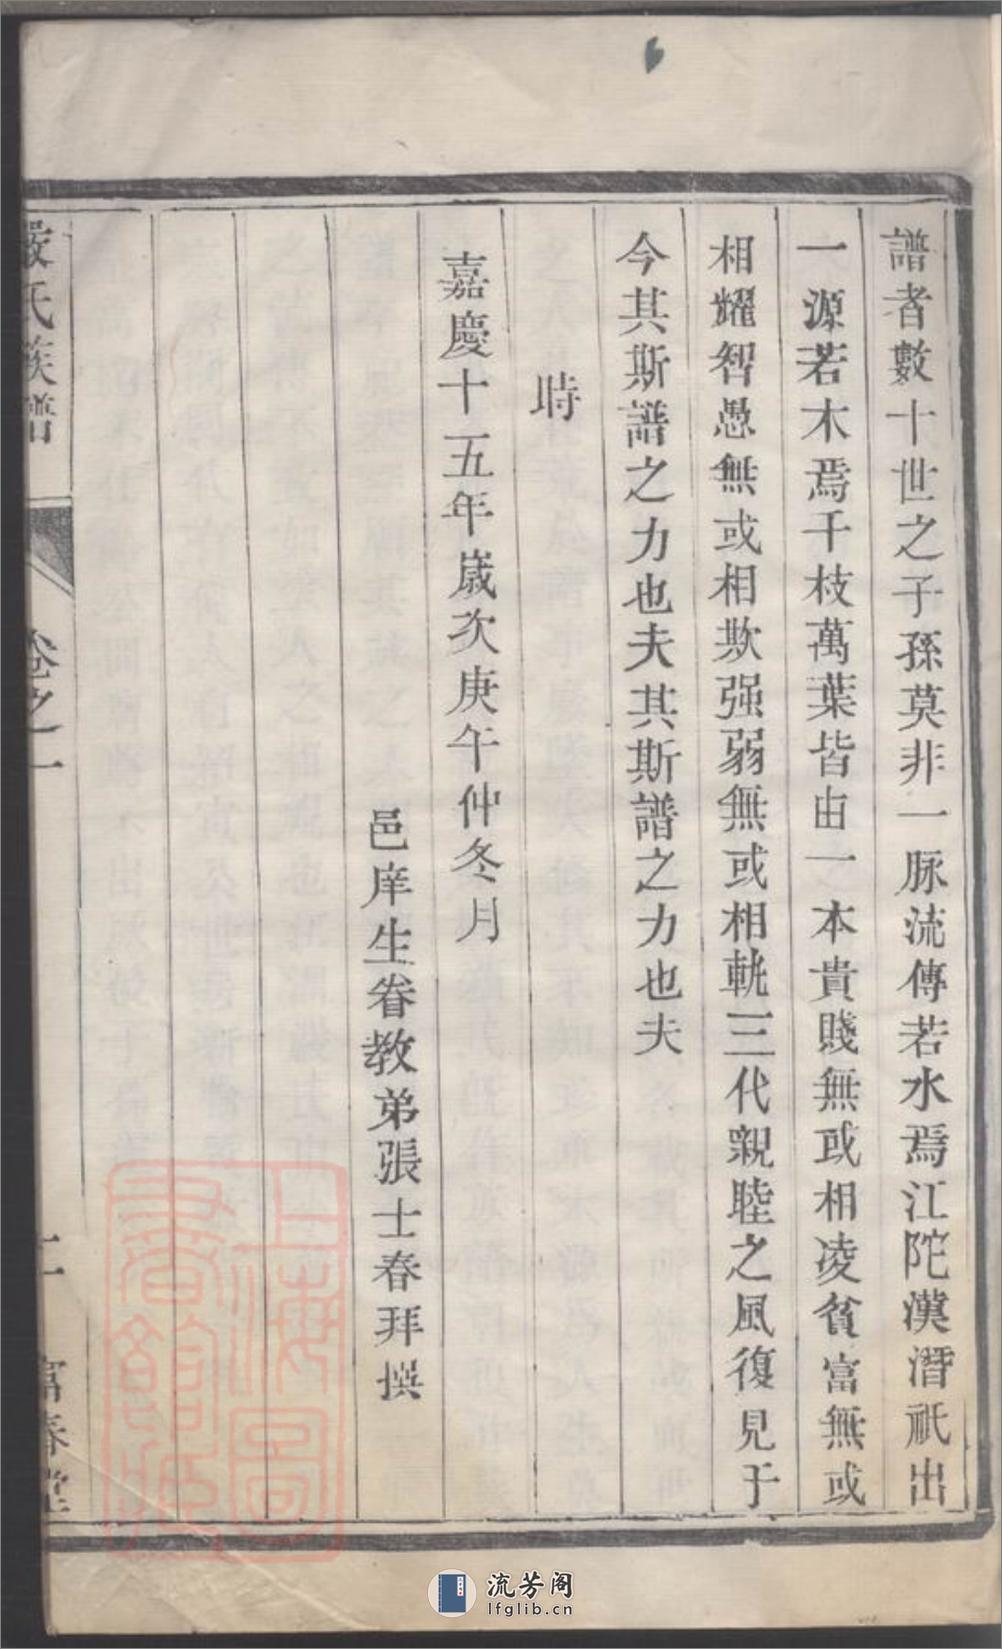 譜者數十世之子孫莫非一脉流傳若水焉江陀漢潛祇出
一源若木焉千枝萬葉皆由一本貴賤無或相凌貧富無或
相耀智愚無或相欺强弱無或相軋三代親睦之風復見于
今其斯譜之力也夫其斯譜之力也夫
時
嘉慶十五年歲次庚午仲冬月
邑庠生眷教弟張士春拜撰
嚴氏族譜
卷之一
富春堂
上海圖書館藏
流芳阁
lfglib.cn